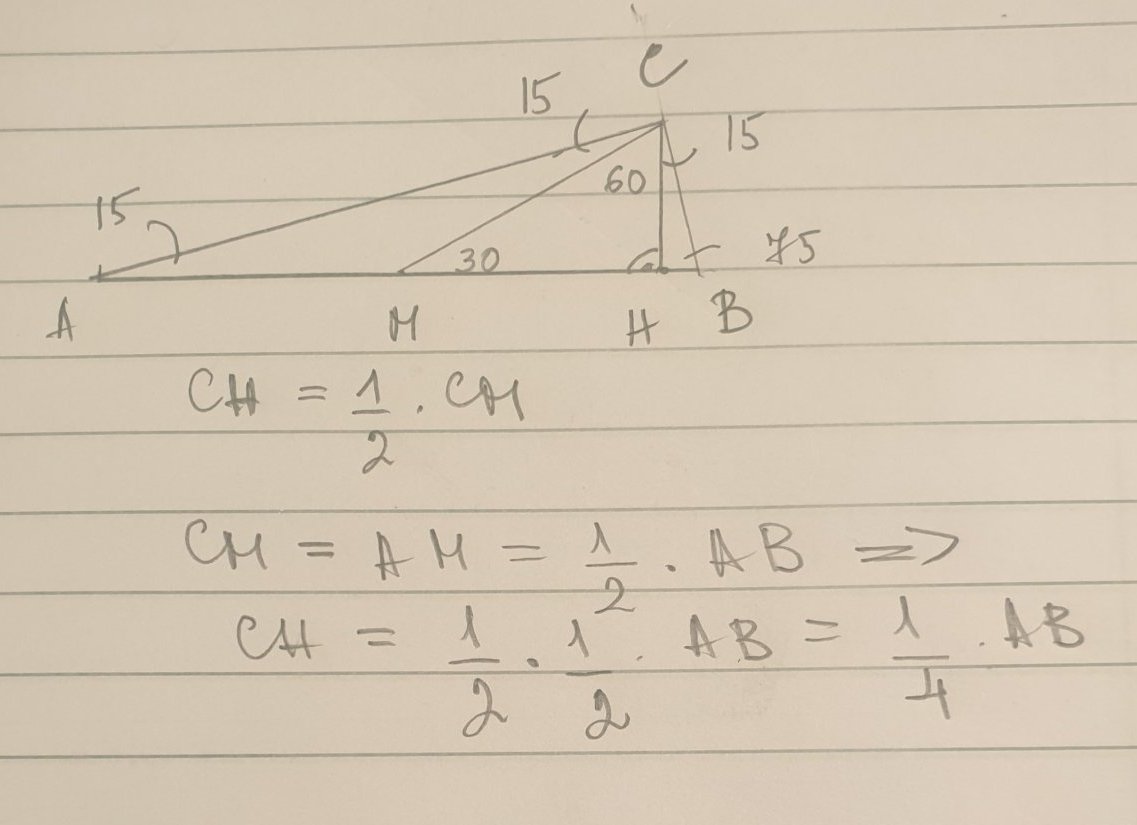 C
15
15
60
15
30
75
A M H B
CH = 1/2 . CM
CM = AM = 1/2 . AB =>
CH = 1/2 . 1/2 . AB = 1/4 . AB